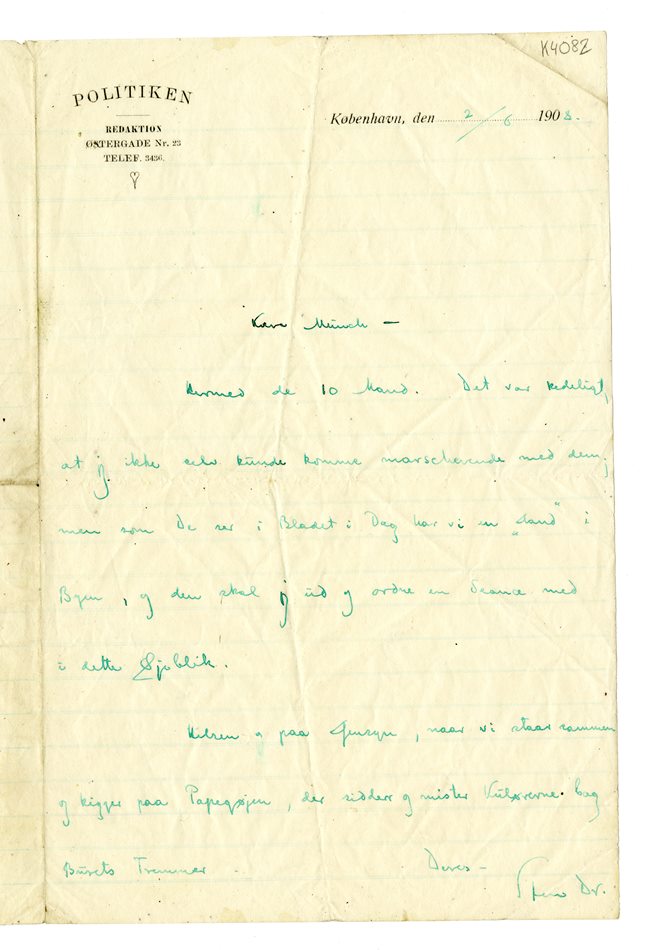 K4082
POLITIKEN
REDAKTION
ØSTERGADE Nr. 23
TELEF. 3436.
København, den 2/6 1908.
Kære Munch —
Hermed de 10 Mand. Det var kedeligt,
at jeg ikke selv kunde komme marscherende med dem,
men som De ser i Bladet i Dag har vi en „Aand“ i
Byen, og den skal jeg ud og ordne en Seance med
i dette Øjeblik.
Hilsen og paa Gensyn, naar vi staar sammen
og kigger paa Papegøjen, der sidder og mister Kulørerne bag
Burets Tremmer
Deres —
Dr.